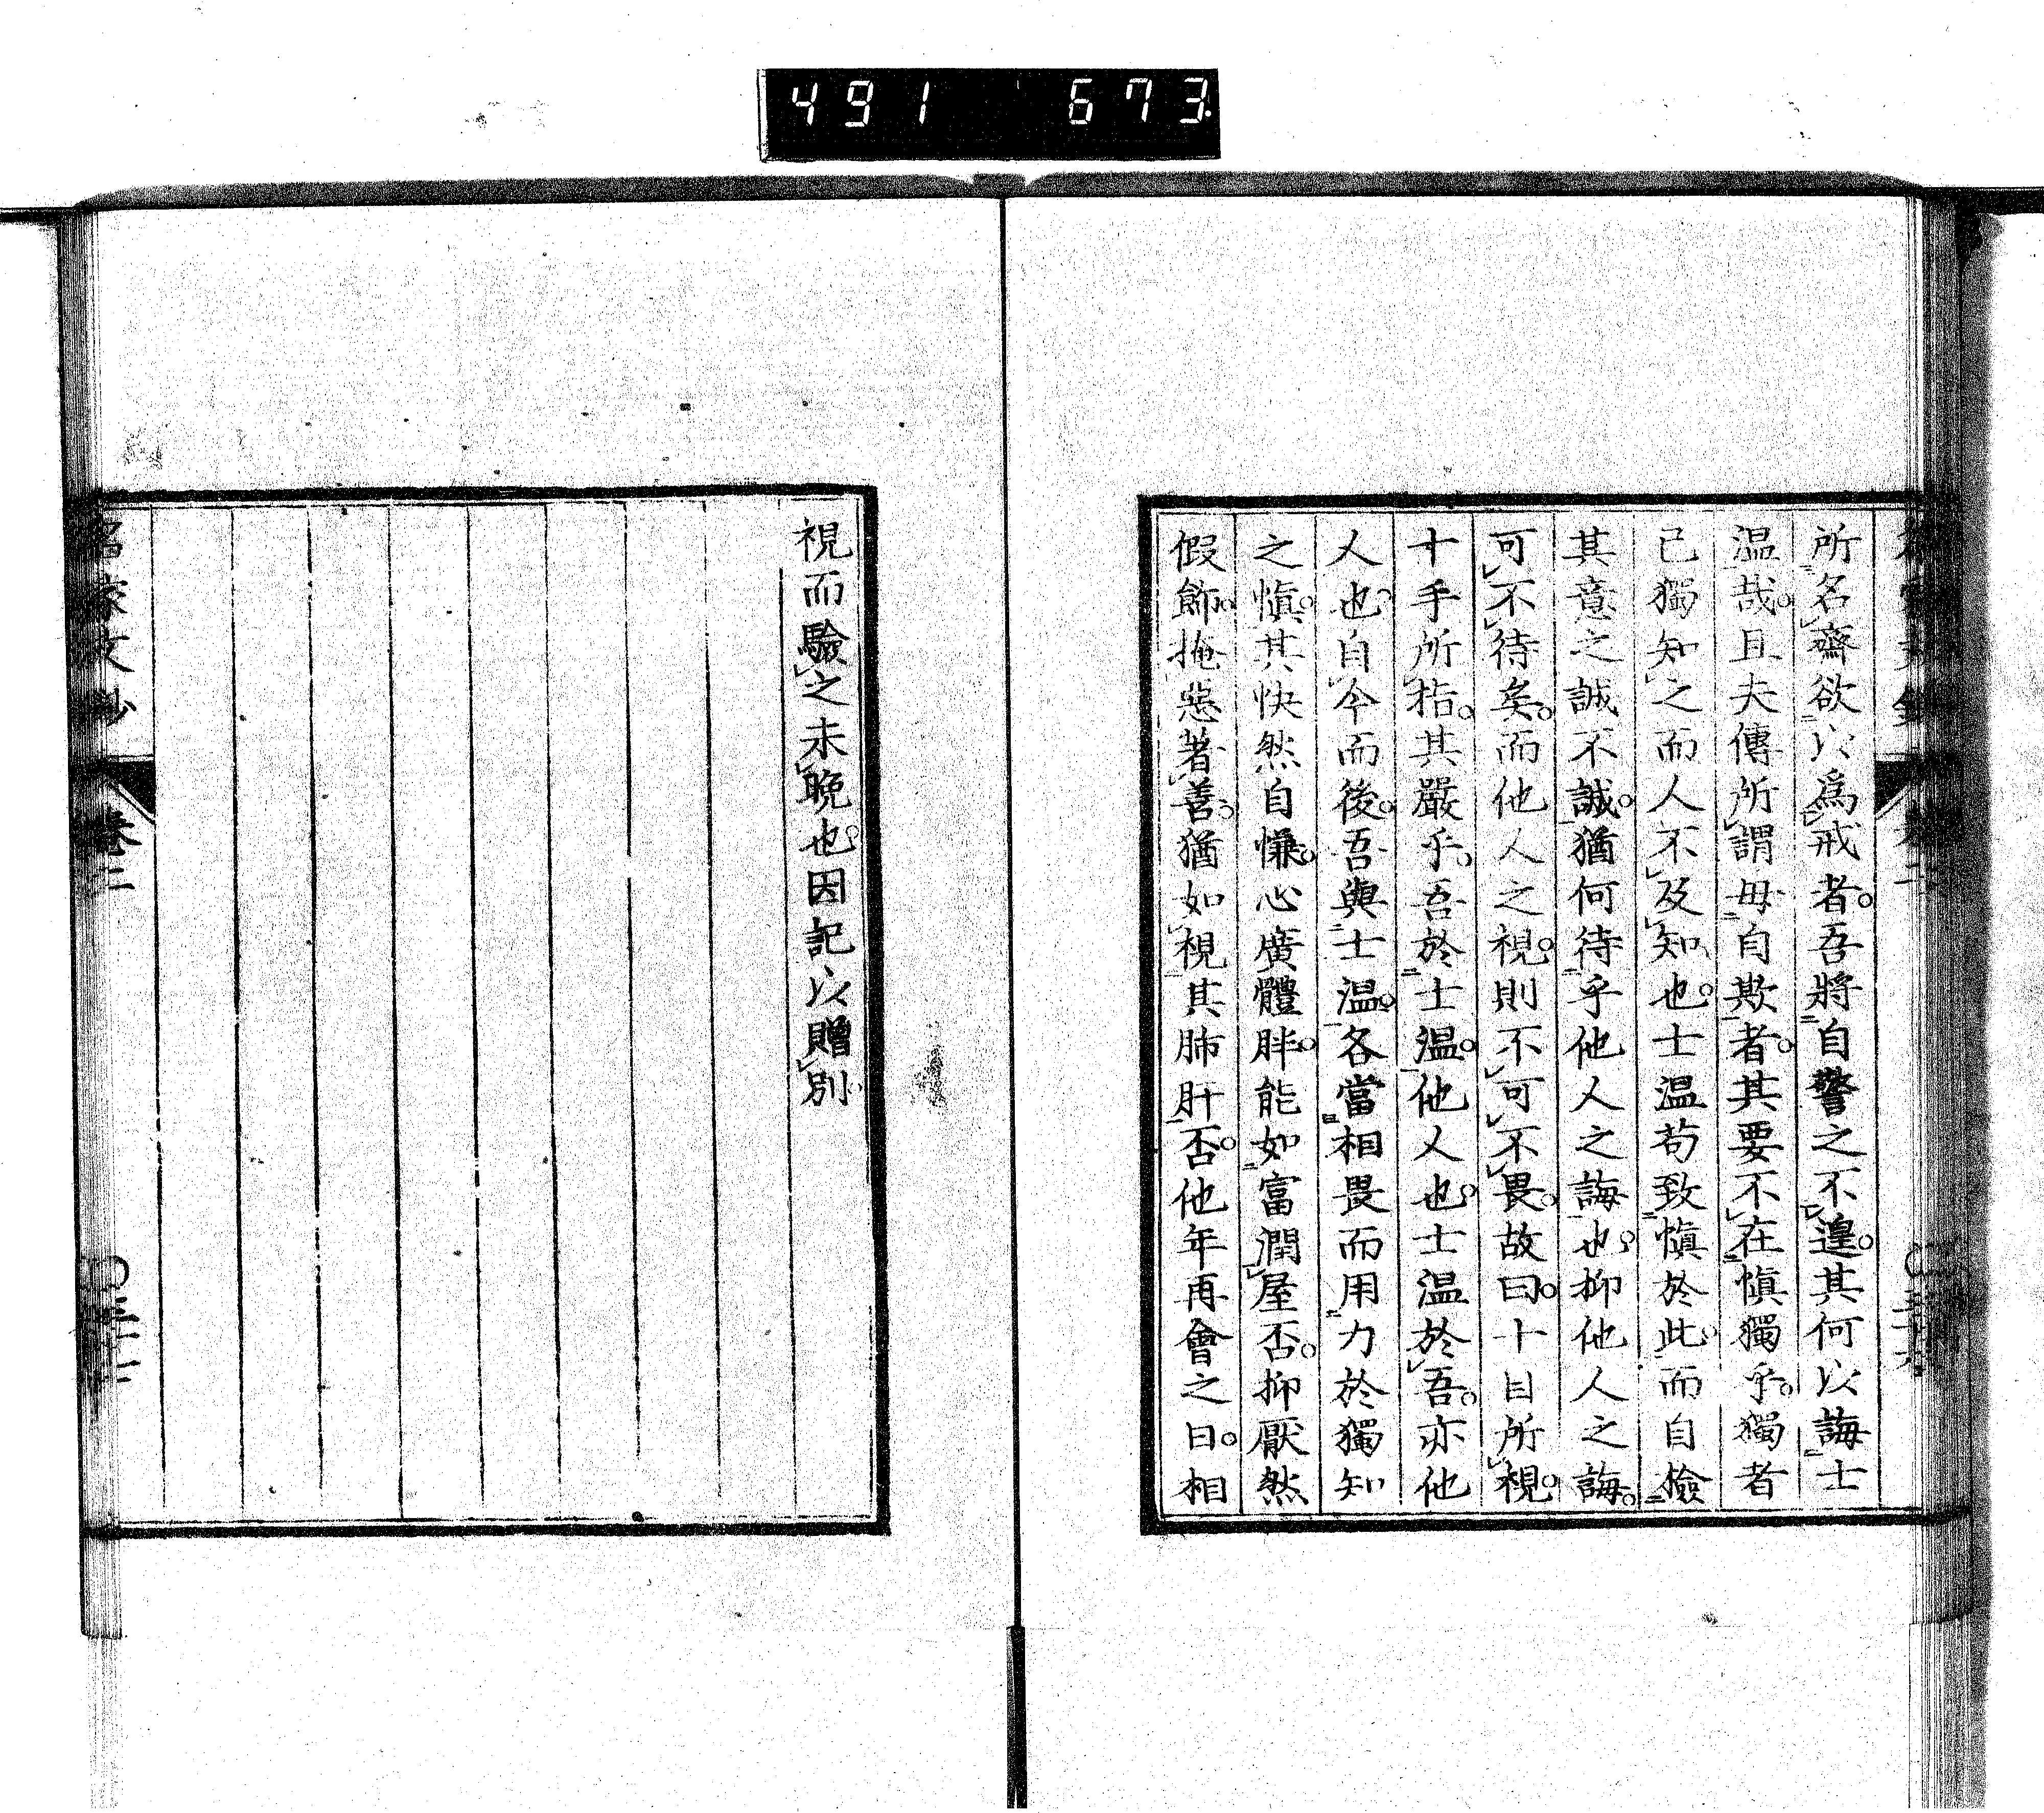 491 673
所名齋欲以爲戒者。吾將自警之不遑。其何以誨士
温哉。且夫傳所謂毋自欺者。其要不在愼獨乎。獨者
己獨知之而人不及知也。士温苟致愼於此。而自檢
其意之誠不誠。猶何待乎他人之誨也。抑他人之誨。
可不待矣。而他人之視。則不可不畏。故曰。十目所視。
十手所指。其嚴乎。吾於士温。他人也。士温於吾。亦他
人也。自今而後。吾與士温。各當相畏而用力於獨知
之愼。其快然自慊。心廣體胖。能如富潤屋否。抑厭然
假飾。掩惡著善。猶如視其肺肝否。他年再會之日。相
視而驗之未晩也。因記以贈別
名家文抄 卷二